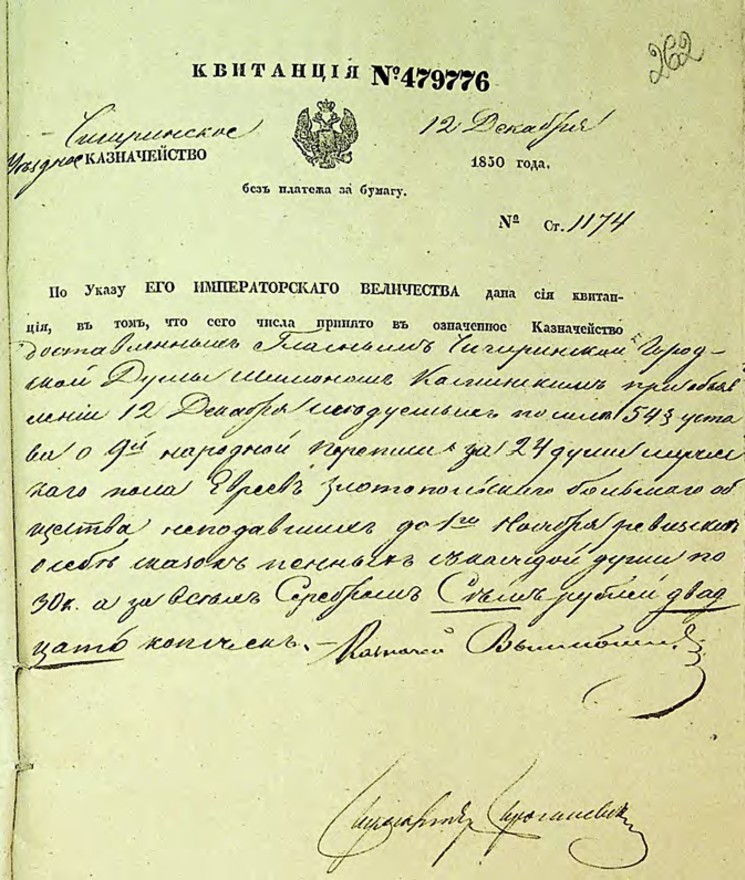 262
КВИТАНЦІЯ №479776
Чигиринское
Уѣздное КАЗНАЧЕЙСТВО
12 Декабря
1850 года.
безъ платежа за бумагу.
№ Ст. 1174
По Указу ЕГО ИМПЕРАТОРСКАГО ВЕЛИЧЕСТВА дана сія квитан-
ція, въ томъ, что сего числа принято въ означенное Казначейство
доставленныхъ Гласнымъ Чигиринской Город-
ской Думы при объяв
леніи 12 Декабря 543 уста
ва о 9й народной переписи за 24 души мужес
каго пола Евреевъ Златопольскаго об
щества неподавшихъ до 1го Ноября ревизскихъ
о себѣ сказокъ пенныхъ съ каждой души по
30к. а за всѣхъ Серебромъ Сѣмь рублей двад
цать копѣекъ. Казначей